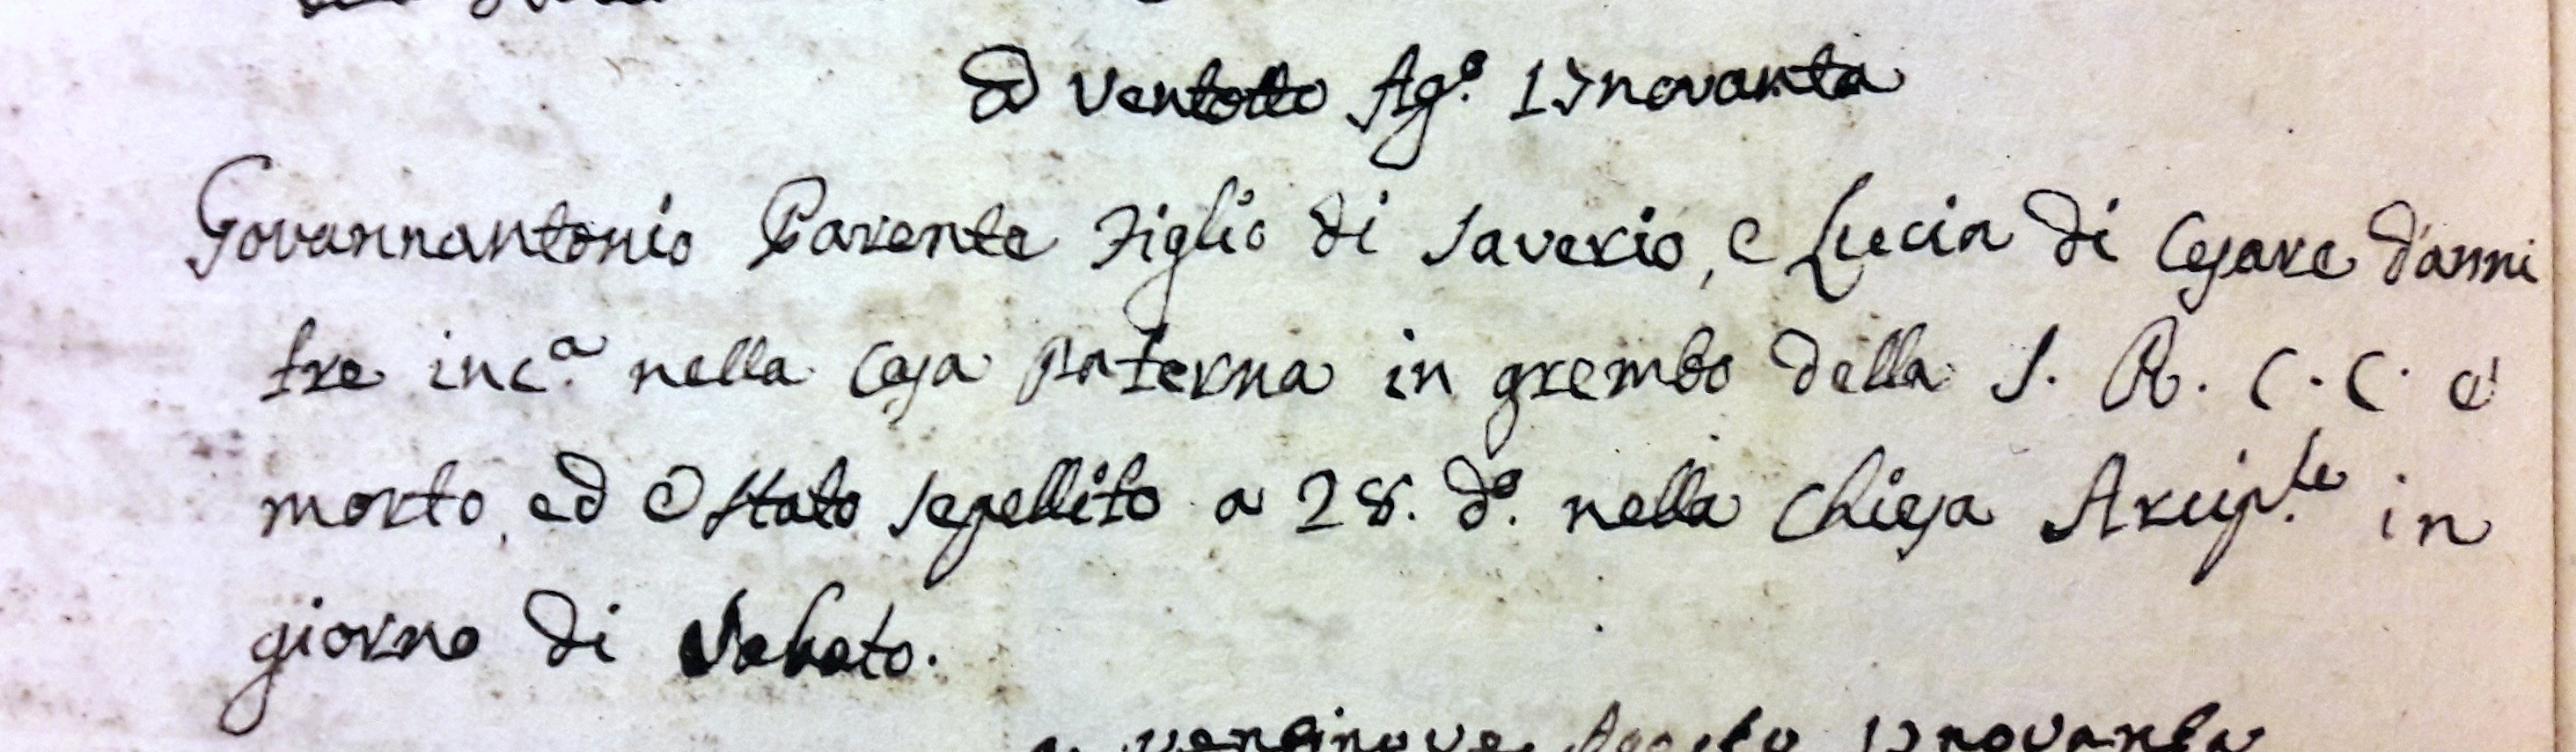 A Ventotto Ag.o 17novanta
Giovannantonio Parente Figlio di Saverio, e Lucia di Cesare d'anni
tre inc.a nella Casa Paterna in grembo della S. R. C. C. è
morto, ed è stato sepellito a 28. d.o nella Chiesa Arcip.le in
giorno di Sabato.
Ventinove Agosto 17novanta